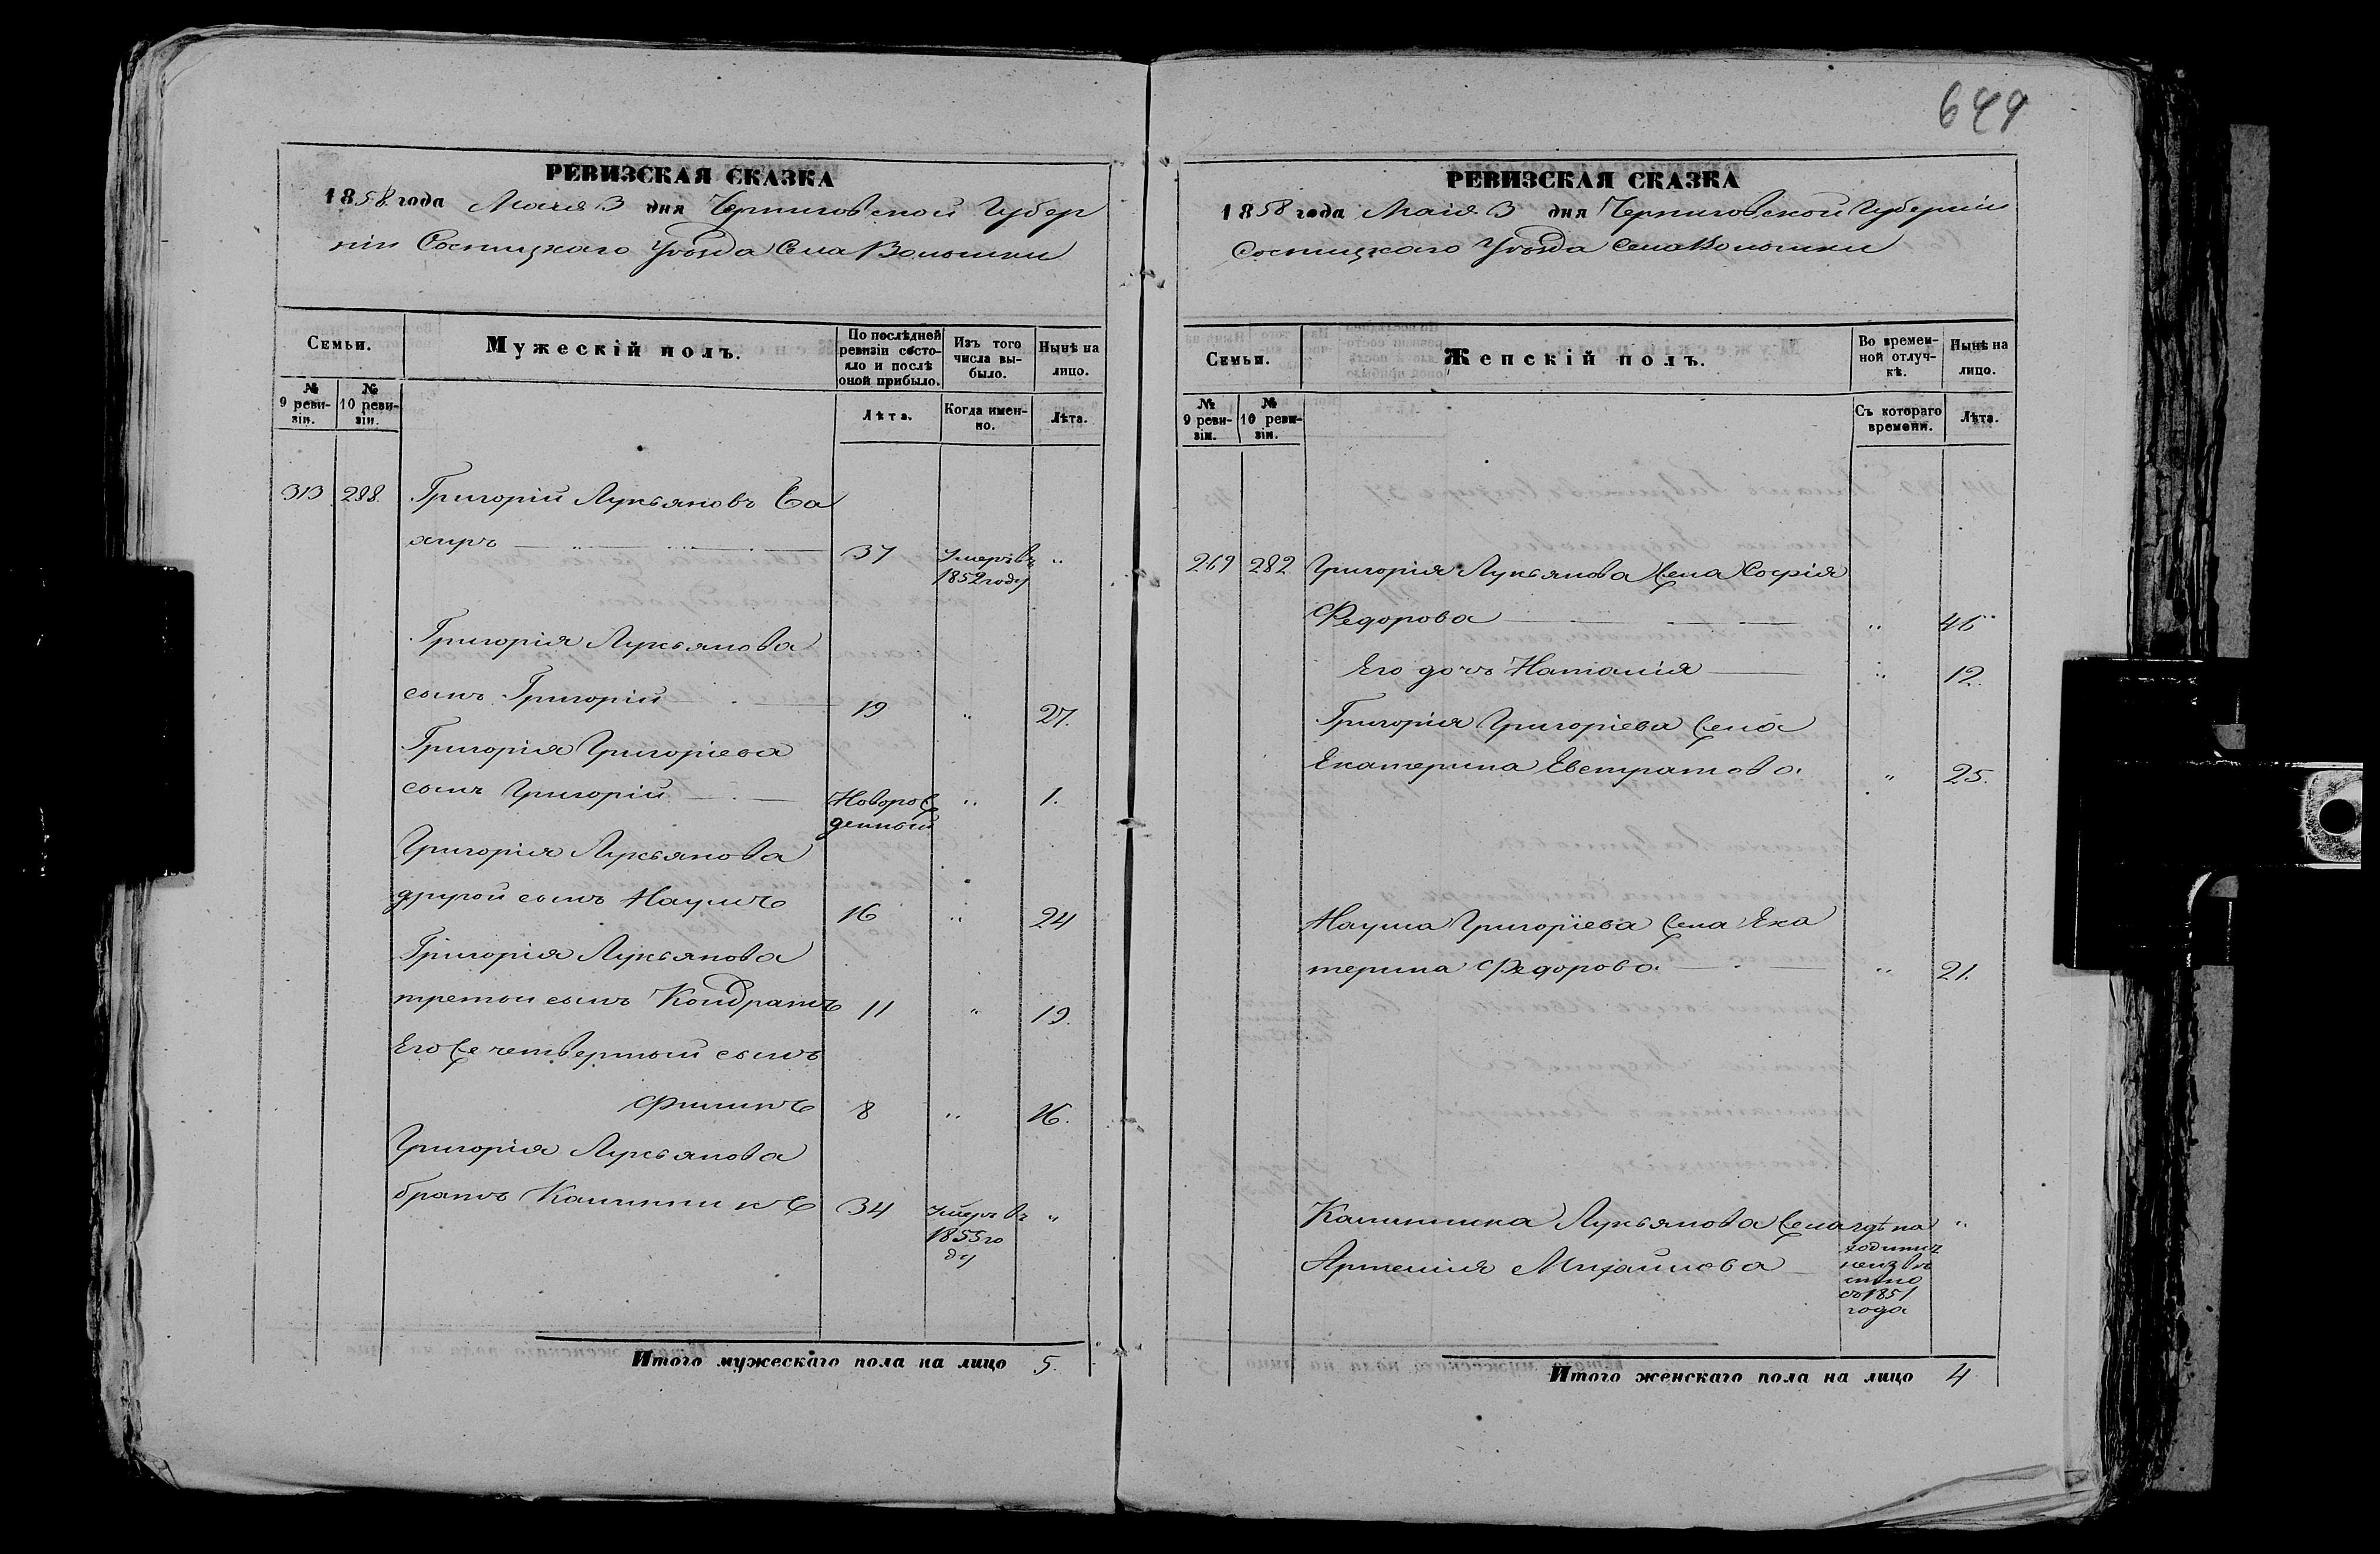 649
РЕВИЗСКАЯ СКАЗКА
1858 года Маия 3 дня Черниговской Губер
ніи Сосницкаго Уѣзда Села Волынки
Семьи.
Мужескій полъ.
По послѣдней ревизіи состояло и послѣ оной прибыло.
Изъ того числа выбыло.
Нынѣ на лицо.
№ 9 ревизіи.
№ 10 ревизіи.
Лѣта.
Когда именно.
Лѣта.
313 288 Григорій Лукьяновъ Са
хиръ 37 Умеръ въ 1852 году "
Григорія Лукьянова
сынъ Григорій 19 " 27.
Григорія Григоріева
сынъ Григорій Новорожденный " 1.
Григорія Лукьянова
другой сынъ Наумъ 16 " 24
Григорія Лукьянова
третой сынъ Кондратъ 11 " 19.
Его же четвертый сынъ
Филипъ 8 " 16.
Григорія Лукьянова
братъ Калинникъ 34 Умеръ въ 1855 году "
Итого мужескаго пола на лицо 5.
РЕВИЗСКАЯ СКАЗКА
1858 года Маія 3 дня Черниговской Губерніи
Сосницкаго Уѣзда Села Волынки
Семьи.
Женскій полъ.
Во временной отлучкѣ.
Нынѣ на лицо.
№ 9 ревизіи.
№ 10 ревизіи.
Съ котораго времени.
Лѣта.
269 282 Григорія Лукьянова жена Софія
Федорова " 46
Его дочь Наталія " 12.
Григорія Григоріева жена
Екатерина Евстратова " 25.
Наума Григоріева жена Ека
терина Федорова " 21.
Калинника Лукьянова жена гдѣ на "
Михайлова ходитца неизвѣстно съ 1851 года
Итого женскаго пола на лицо 4